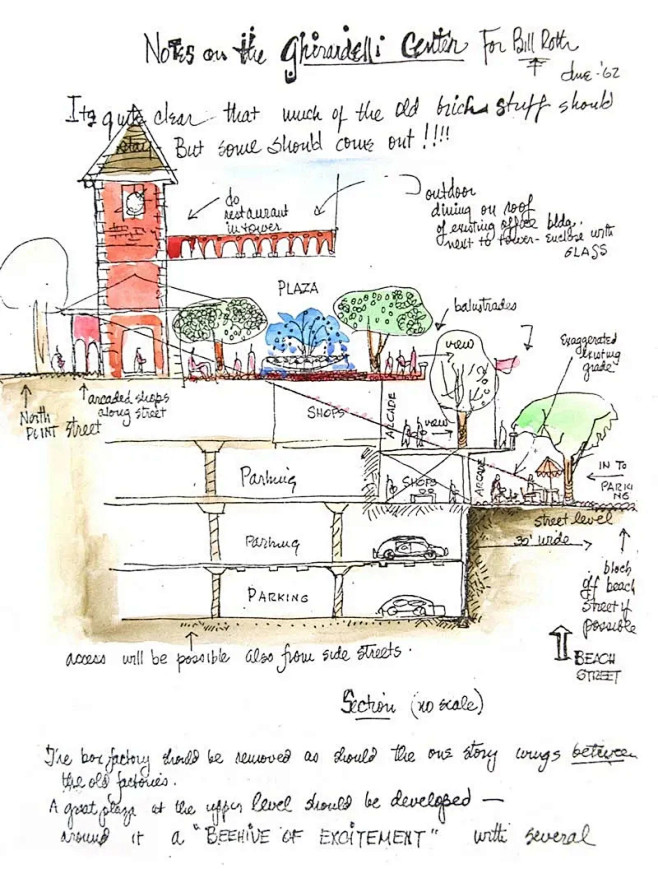 Notes on the Ghirardelli Center For Bill Roth
June '62
Its quite clear that much of the old brick stuff should
stay But some should come out !!!!
do
restaurant
in tower
outdoor
dining on roof
of existing office bldg.
next to tower - enclose with
GLASS
PLAZA
balustrades
view
Exaggerated
existing
grade
North
POINT Street
arcaded shops
along street
SHOPS
ARCADE
view
SHOPS
ARCADE
IN TO
PARKI
NG
Parking
street level
30' wide
Parking
PARKING
block
off beach
street if
possible
BEACH
STREET
access will be possible also from side streets.
Section (no scale)
The box factory should be removed as should the one story wings between
the old factories.
A great plaza at the upper level should be developed —
around it a "BEEHIVE OF EXCITEMENT" with several